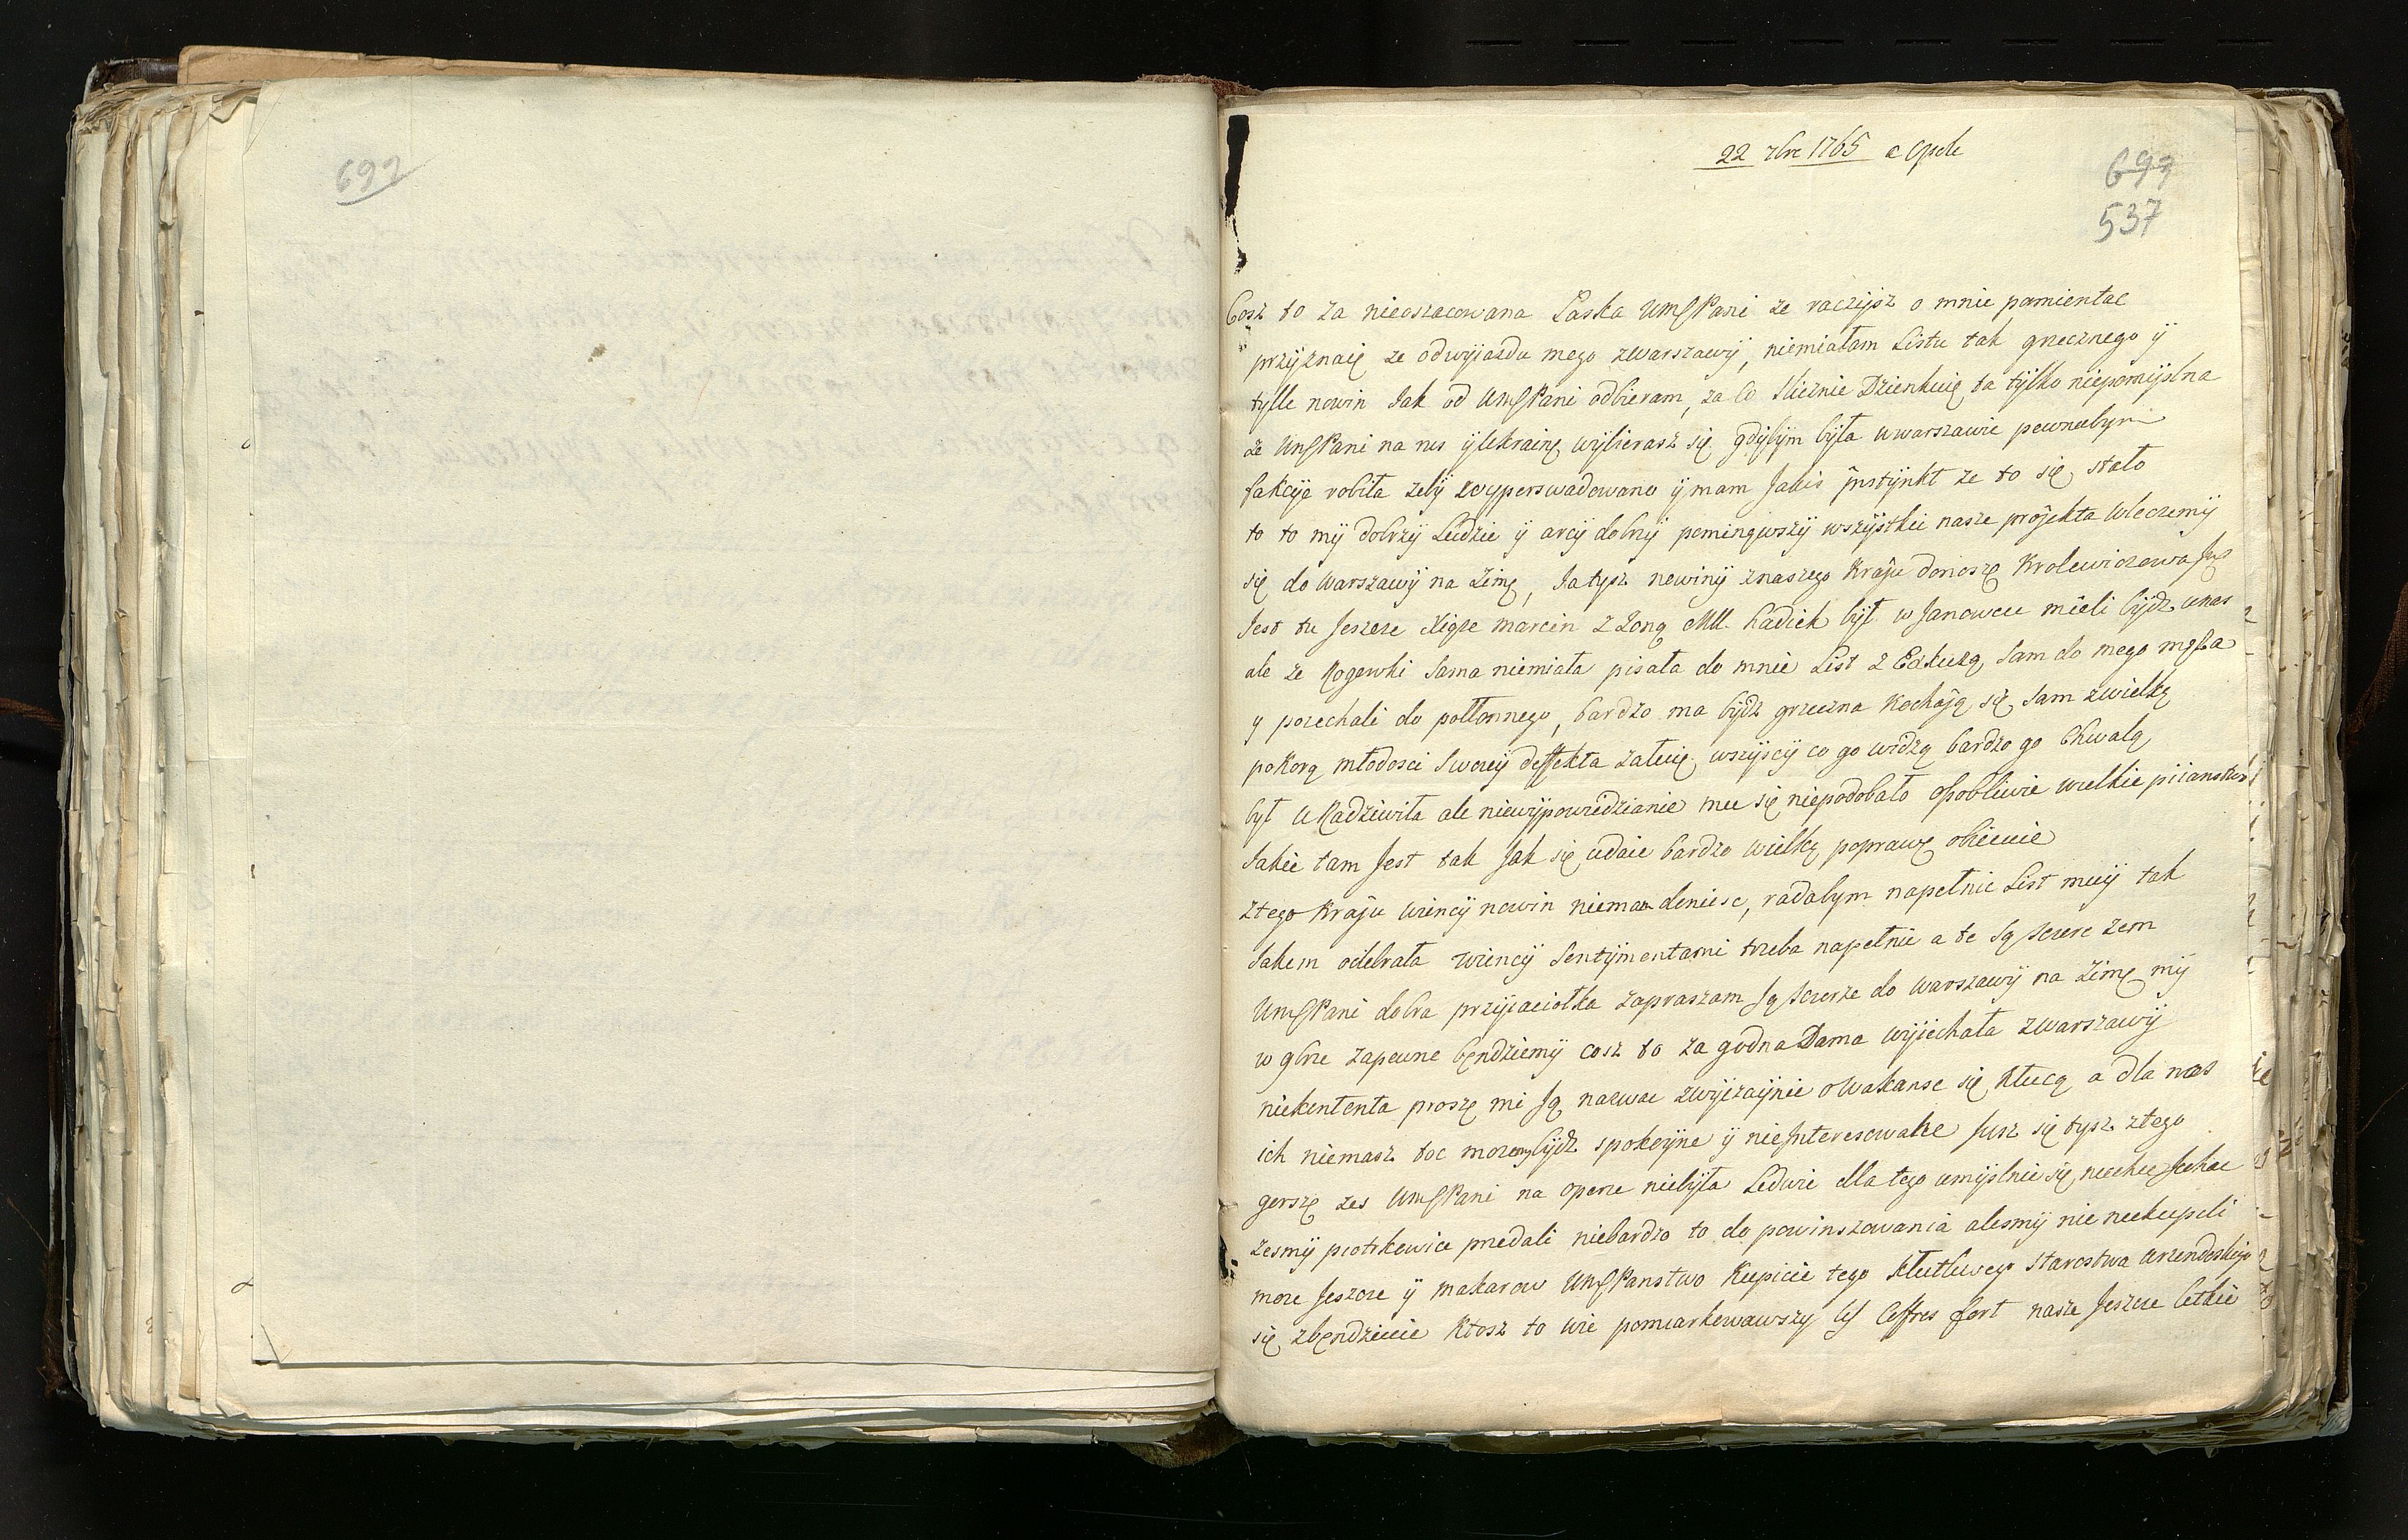 692
22 7bre 1765 a Opole
699
537
Cosz to za nieoszacowana Łaska UmSPani ze raczijsz o mnie pamientac
przijznaię ze odwyiazdu mego zwarszawij, niemiałam Listu tak grzecznego ij
tylle nowin Jak od UmSPani odbieram, za Co slicznie Dzienkuię ta tijlko niepomijslna
ze UmSPani na rus ij Ukrainę wijbierasz się gdijbijm bijła w warszawie pewniebijm
fakcije robiła zebij wyperswadowano ij mam Jakis jnstijnkt ze to się stało
to to mij dobrzij Ludzie ij arcij dobrij pominąwszij wszijstkie nasze projekta wleczemij
się do Warszawij na Zimę, Ja tysz nowinij znaszego Kraju donoszę Krolewiczowa Jus
Jest tu Jeszcze Xiąze marcin z Zoną Mll. hadick bijł w Janowcu mieli bijdz unas
ale ze Rogowki sama niemiała pisała do mnie List z Exkuzą, sam do mego męza
y poiechali do połłonnego, bardzo ma bijdz grzeczna kochają się, sam zwielką
pokorą młodosci swoieij deffekta załuię wszijscij co go widzą bardzo go Chwalą
był U Radziwiła ale niewijpowiedzianie mu się niepodobało osobliwie wielkie piianstwo
Jakie tam Jest tak Jak się udaie bardzo wielką poprawę obiecuie
ztego Kraju wiencij nowin niemam doniesc, radabym napełnic List muij tak
Jakem odebrała wiencij Sentijmentami trzeba napełnic a te są sczere zem
UmSPani dobra przyiaciołka zapraszam Ją sczerze do Warszawij na Zimę mij
w 9bre zapewne bęndziemij cosz to za godna Dama wijiechała zwarszawij
niekontenta proszę mi Ją nazwac zwijczaijnie o wakanse się kłucą a dla nas
ich niemasz toc mozemy bijdz spokoijne ij nieJnteresowane Jusz się tysz ztego
gorszę zes UmSPani na operze niebijła Ledwie dla tego umijslnie się niechce Jechac
zesmij piotrkowice przedali niebardzo to do powinszowania alesmij nic niekupili
moze Jeszcze ij makarow UmSPanstwo Kupicie tego kłutliwego starostwa urzendoskiego
się zbęndziecie Ktosz to wie pomiarkowawszy Coffres fort nasze Jeszcze letkie